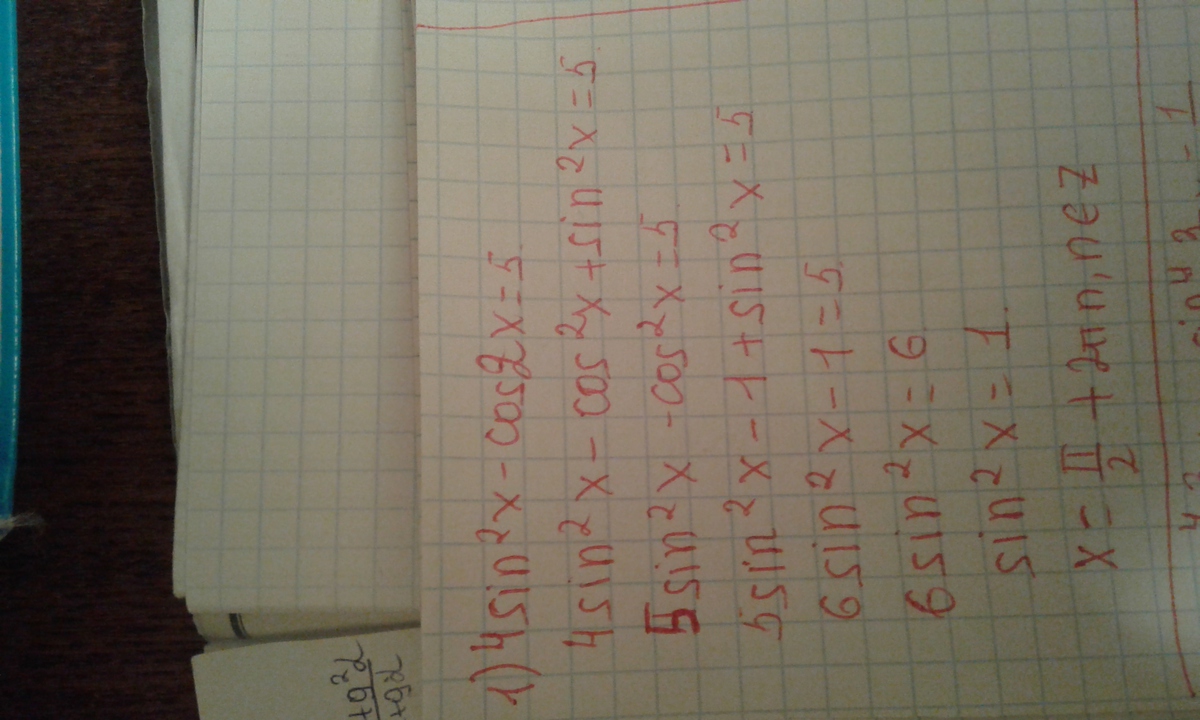 1) 4sin²x - cos2x = 5
4sin²x - cos²x + sin²x = 5
5sin²x - cos²x = 5
5sin²x - 1 + sin²x = 5
6sin²x - 1 = 5
6sin²x = 6
sin²x = 1
x = π/2 + 2πn, n∈Z